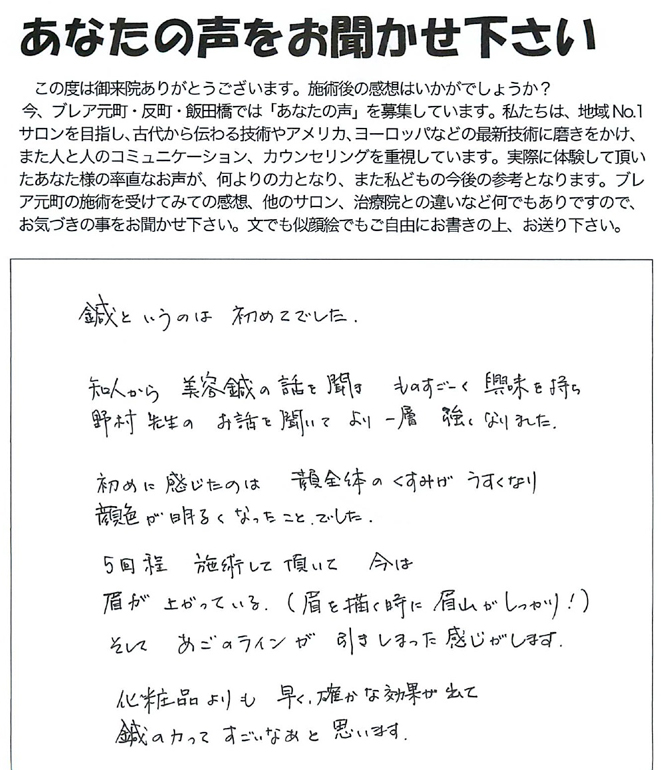 あなたの声をお聞かせ下さい
この度は御来院ありがとうございます。施術後の感想はいかがでしょうか？
今、ブレア元町・反町・飯田橋では「あなたの声」を募集しています。私たちは、地域No.1
サロンを目指し、古代から伝わる技術やアメリカ、ヨーロッパなどの最新技術に磨きをかけ、
また人と人のコミュニケーション、カウンセリングを重視しています。実際に体験して頂い
たあなた様の率直なお声が、何よりの力となり、また私どもの今後の参考となります。ブレ
ア元町の施術を受けてみての感想、他のサロン、治療院との違いなど何でもありですので、
お気づきの事をお聞かせ下さい。文でも似顔絵でもご自由にお書きの上、お送り下さい。
鍼というのは 初めてでした.
知人から 美容鍼の話を聞き ものすごーく 興味を持ち
野村先生の お話を聞いて より一層 強くなりました.
初めに感じたのは 顔全体のくすみが うすくなり
顔色が明るくなったこと.でした.
5回程 施術して頂いて 今は
眉が 上がっている.(眉を描く時に眉山がしっかり!)
そして あごのラインが 引きしまった感じがします.
化粧品よりも 早く.確かな効果が出て
鍼の力って すごいなぁと 思います.